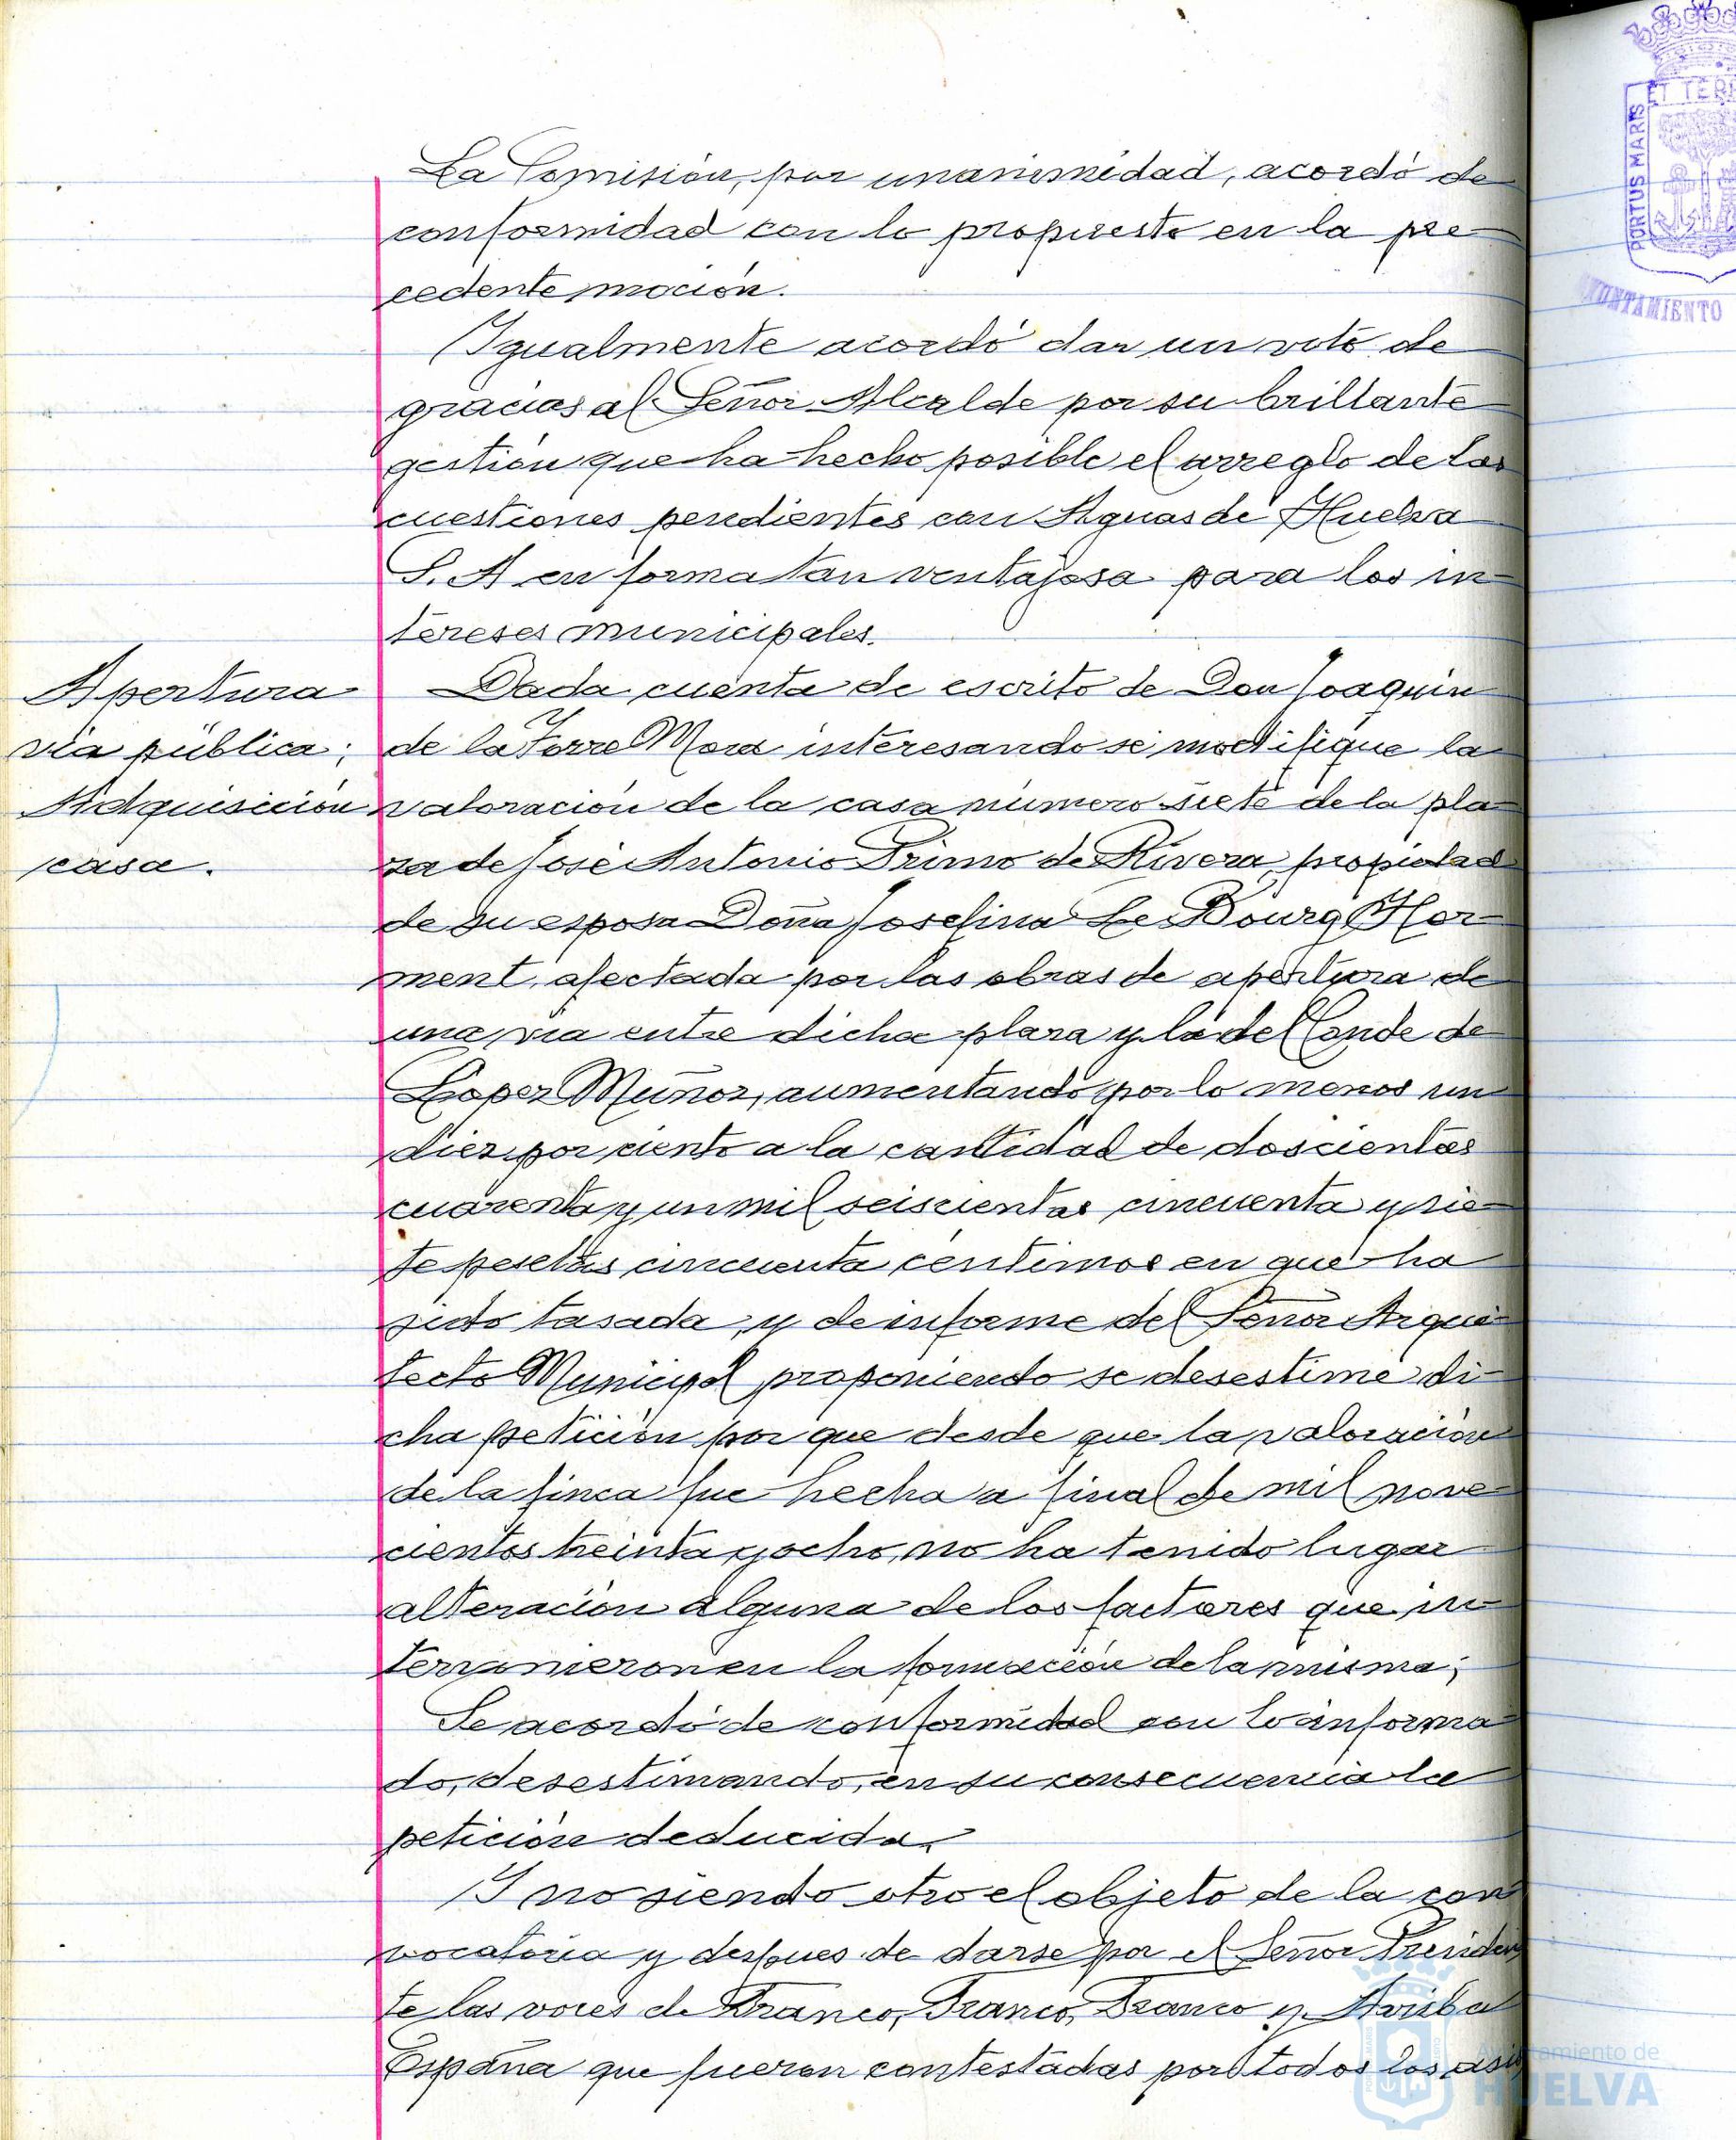 La Comisión, por unanimidad, acordó de
conformidad con lo propuesto en la pre-
cedente moción.
Igualmente acordó dar un voto de
gracias al Señor Alcalde por su brillante
gestión que ha hecho posible el arreglo de las
cuestiones pendientes con Aguas de Huelva
S. A en forma tan ventajosa para los in-
tereses municipales.
Apertura
vía pública;
Adquisición
casa.
Dada cuenta de escrito de Don Joaquin
de la Torre Mora interesando se modifique la
valoración de la casa número siete de la pla-
za de José Antonio Primo de Rivera, propiedad
de su esposa Doña Josefina Le Bourg Hor-
ment, afectada por las obras de apertura de
una vía entre dicha plaza y la del Conde de
López Muñoz, aumentando por lo menos un
diez por ciento a la cantidad de doscientas
cuarenta y un mil seiscientas cincuenta y sie-
te pesetas cincuenta centimos en que ha
sido tasada, y de informe del Señor Arqui-
tecto Municipal proponiendo se desestime di-
cha petición por que desde que la valoración
de la finca fue hecha a final de mil nove-
cientos treinta y ocho, no ha tenido lugar
alteración alguna de los factores que in-
tervinieron en la formación de la misma;
Se acordó de conformidad con lo informa-
do, desestimando, en su consecuencia la
petición deducida.
Y no siendo otro el objeto de la con
vocatoria y despues de darse por el Señor Presiden
te las voces de Franco, Franco, Franco y Arriba
España que fueron contestadas por todos los asis
PORTUS MARIS
ET TERR
UNTAMIENTO
Ayuntamiento de
HUELVA